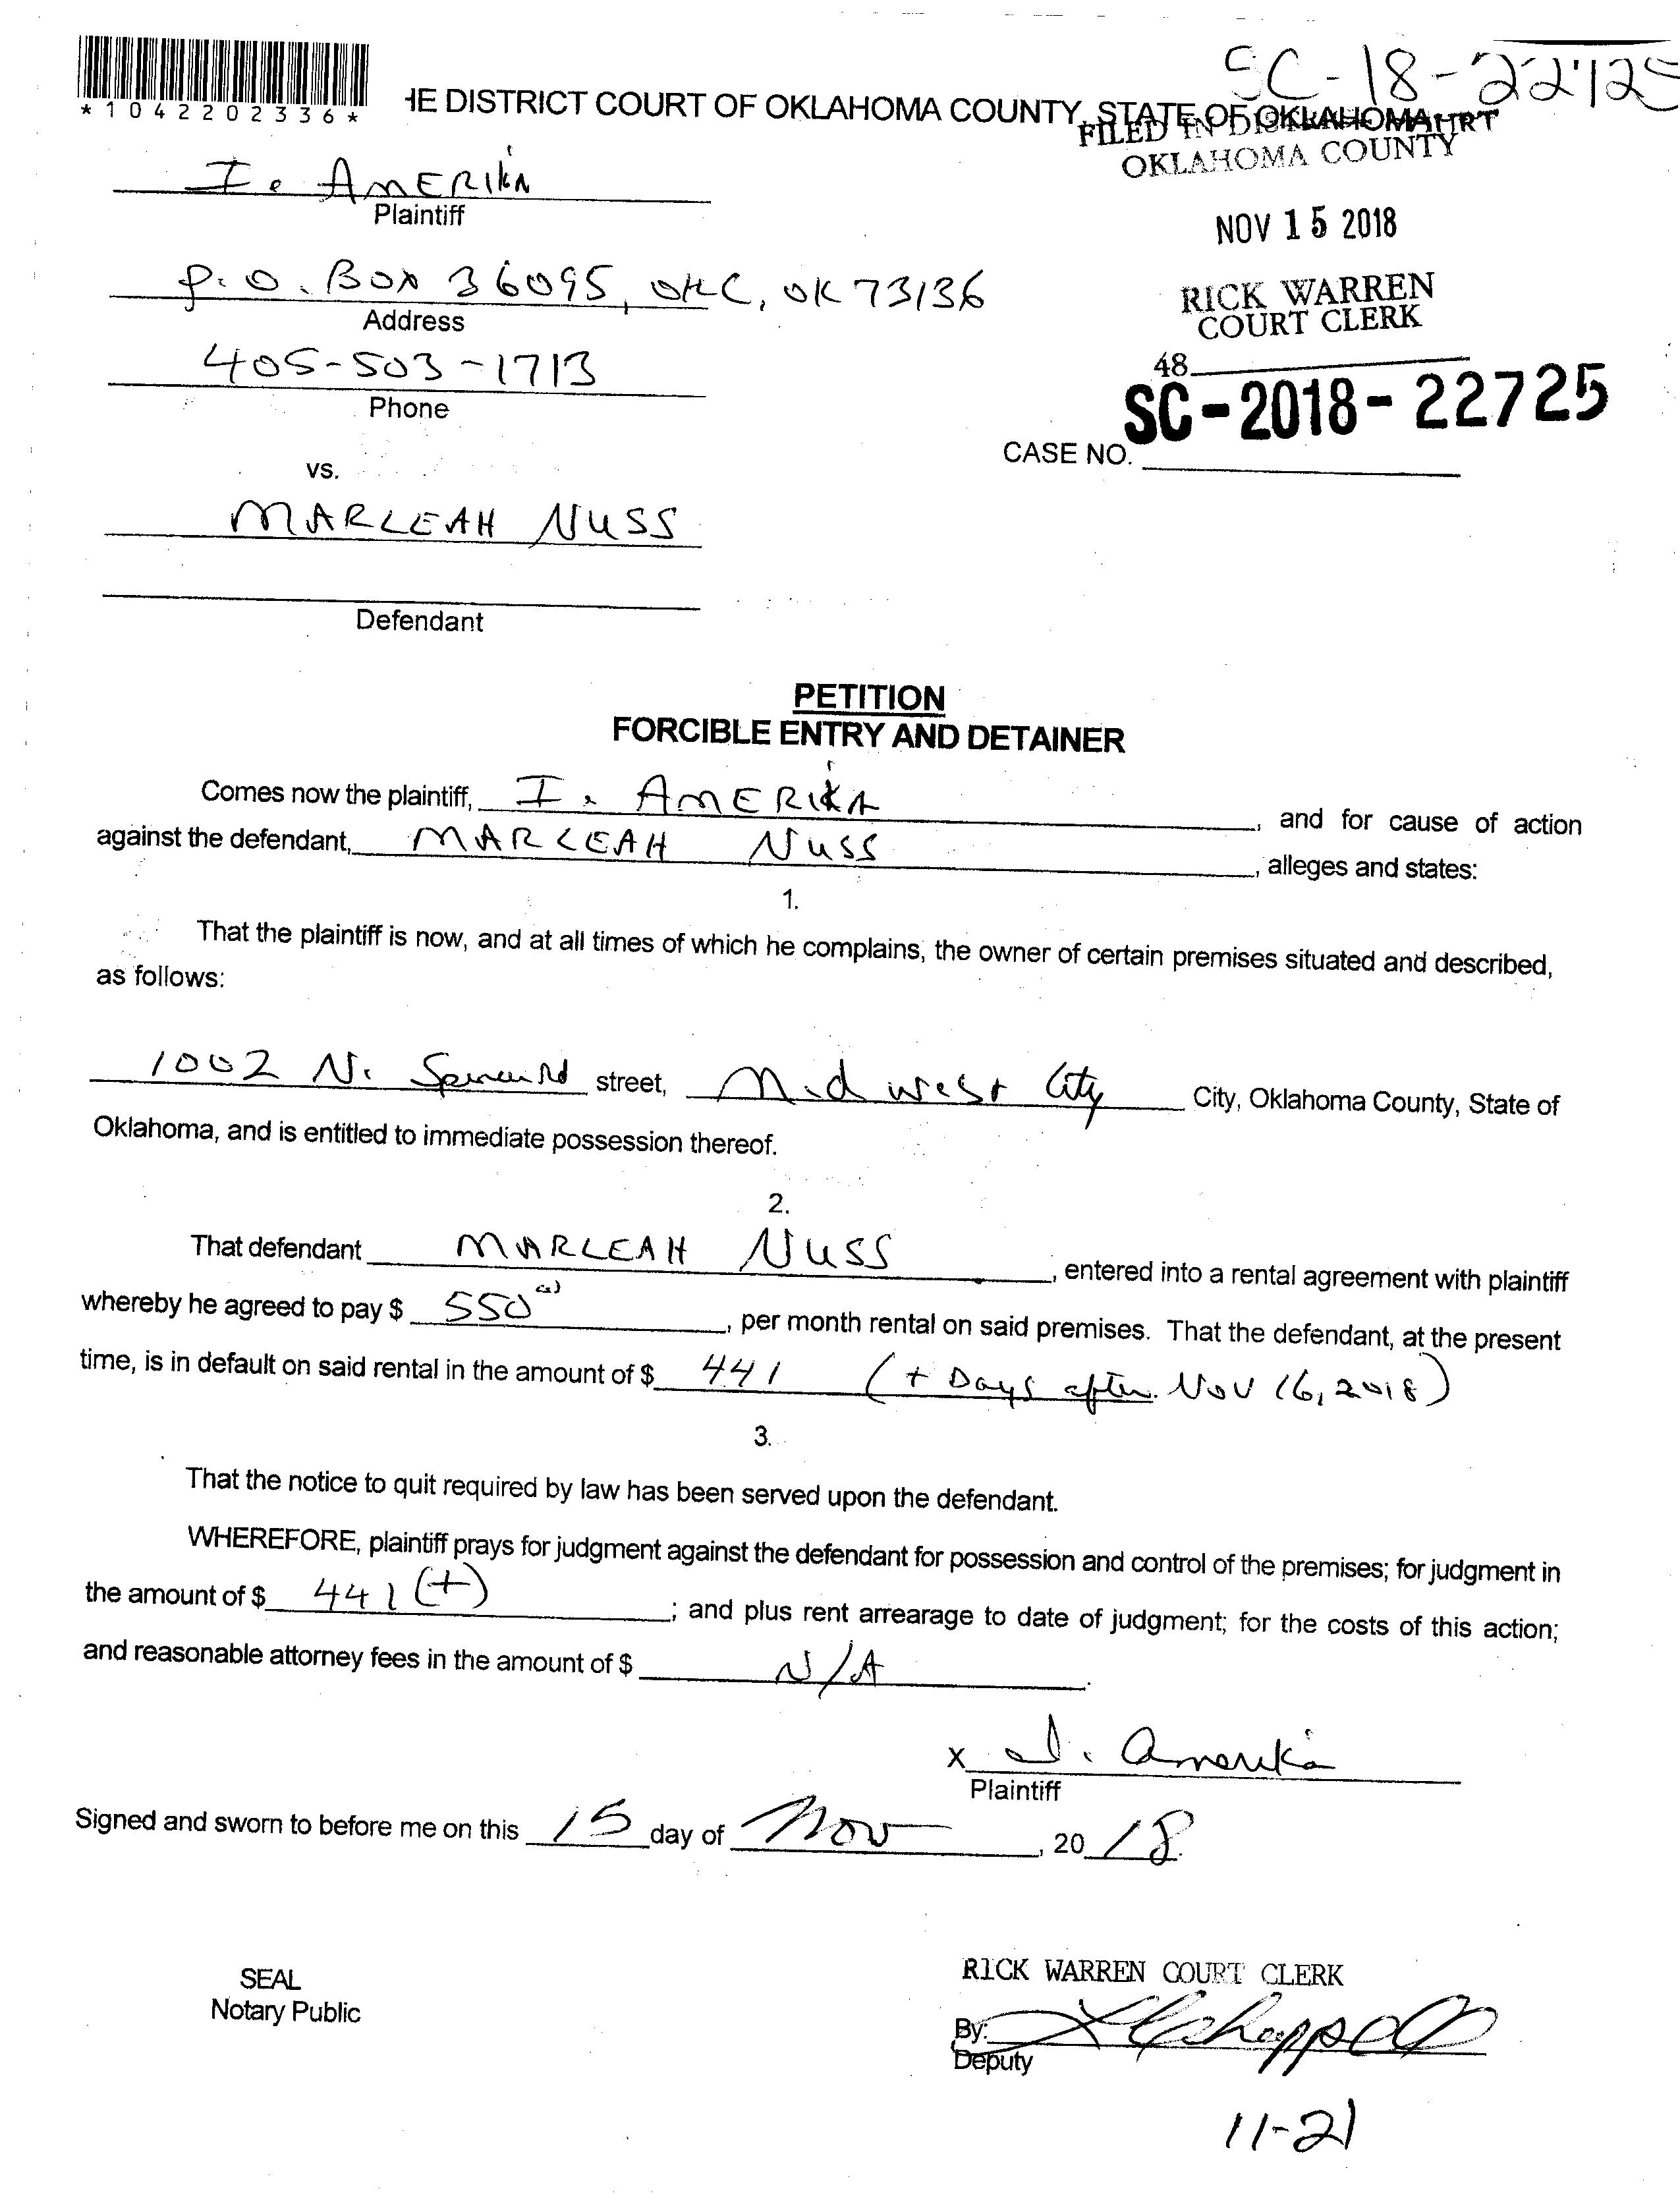 SC-18-22725
*1042202336*
HE DISTRICT COURT OF OKLAHOMA COUNTY, STATE OF OKLAHOMA
FILED IN DISTRICT COURT
OKLAHOMA COUNTY
I. AMERIKA
Plaintiff
NOV 15 2018
P.O. BOX 36095, OKC, OK 73136
Address
RICK WARREN
COURT CLERK
405-503-1713
Phone
48
SC-2018-22725
CASE NO.
vs.
MARLEAH NUSS
Defendant
PETITION
FORCIBLE ENTRY AND DETAINER
Comes now the plaintiff, I. AMERIKA, and for cause of action
against the defendant, MARLEAH NUSS, alleges and states:
1.
That the plaintiff is now, and at all times of which he complains, the owner of certain premises situated and described,
as follows:
1002 N. Spencer Rd street, Midwest City City, Oklahoma County, State of
Oklahoma, and is entitled to immediate possession thereof.
2.
That defendant MARLEAH NUSS, entered into a rental agreement with plaintiff
whereby he agreed to pay $ 550 00, per month rental on said premises. That the defendant, at the present
time, is in default on said rental in the amount of $ 441 (+ Days after Nov 16, 2018)
3.
That the notice to quit required by law has been served upon the defendant.
WHEREFORE, plaintiff prays for judgment against the defendant for possession and control of the premises; for judgment in
the amount of $ 441 (+); and plus rent arrearage to date of judgment; for the costs of this action;
and reasonable attorney fees in the amount of $ N/A.
X I. Amerika
Plaintiff
Signed and sworn to before me on this 15 day of Nov, 2018.
SEAL
Notary Public
RICK WARREN COURT CLERK
By:
Deputy
11-21